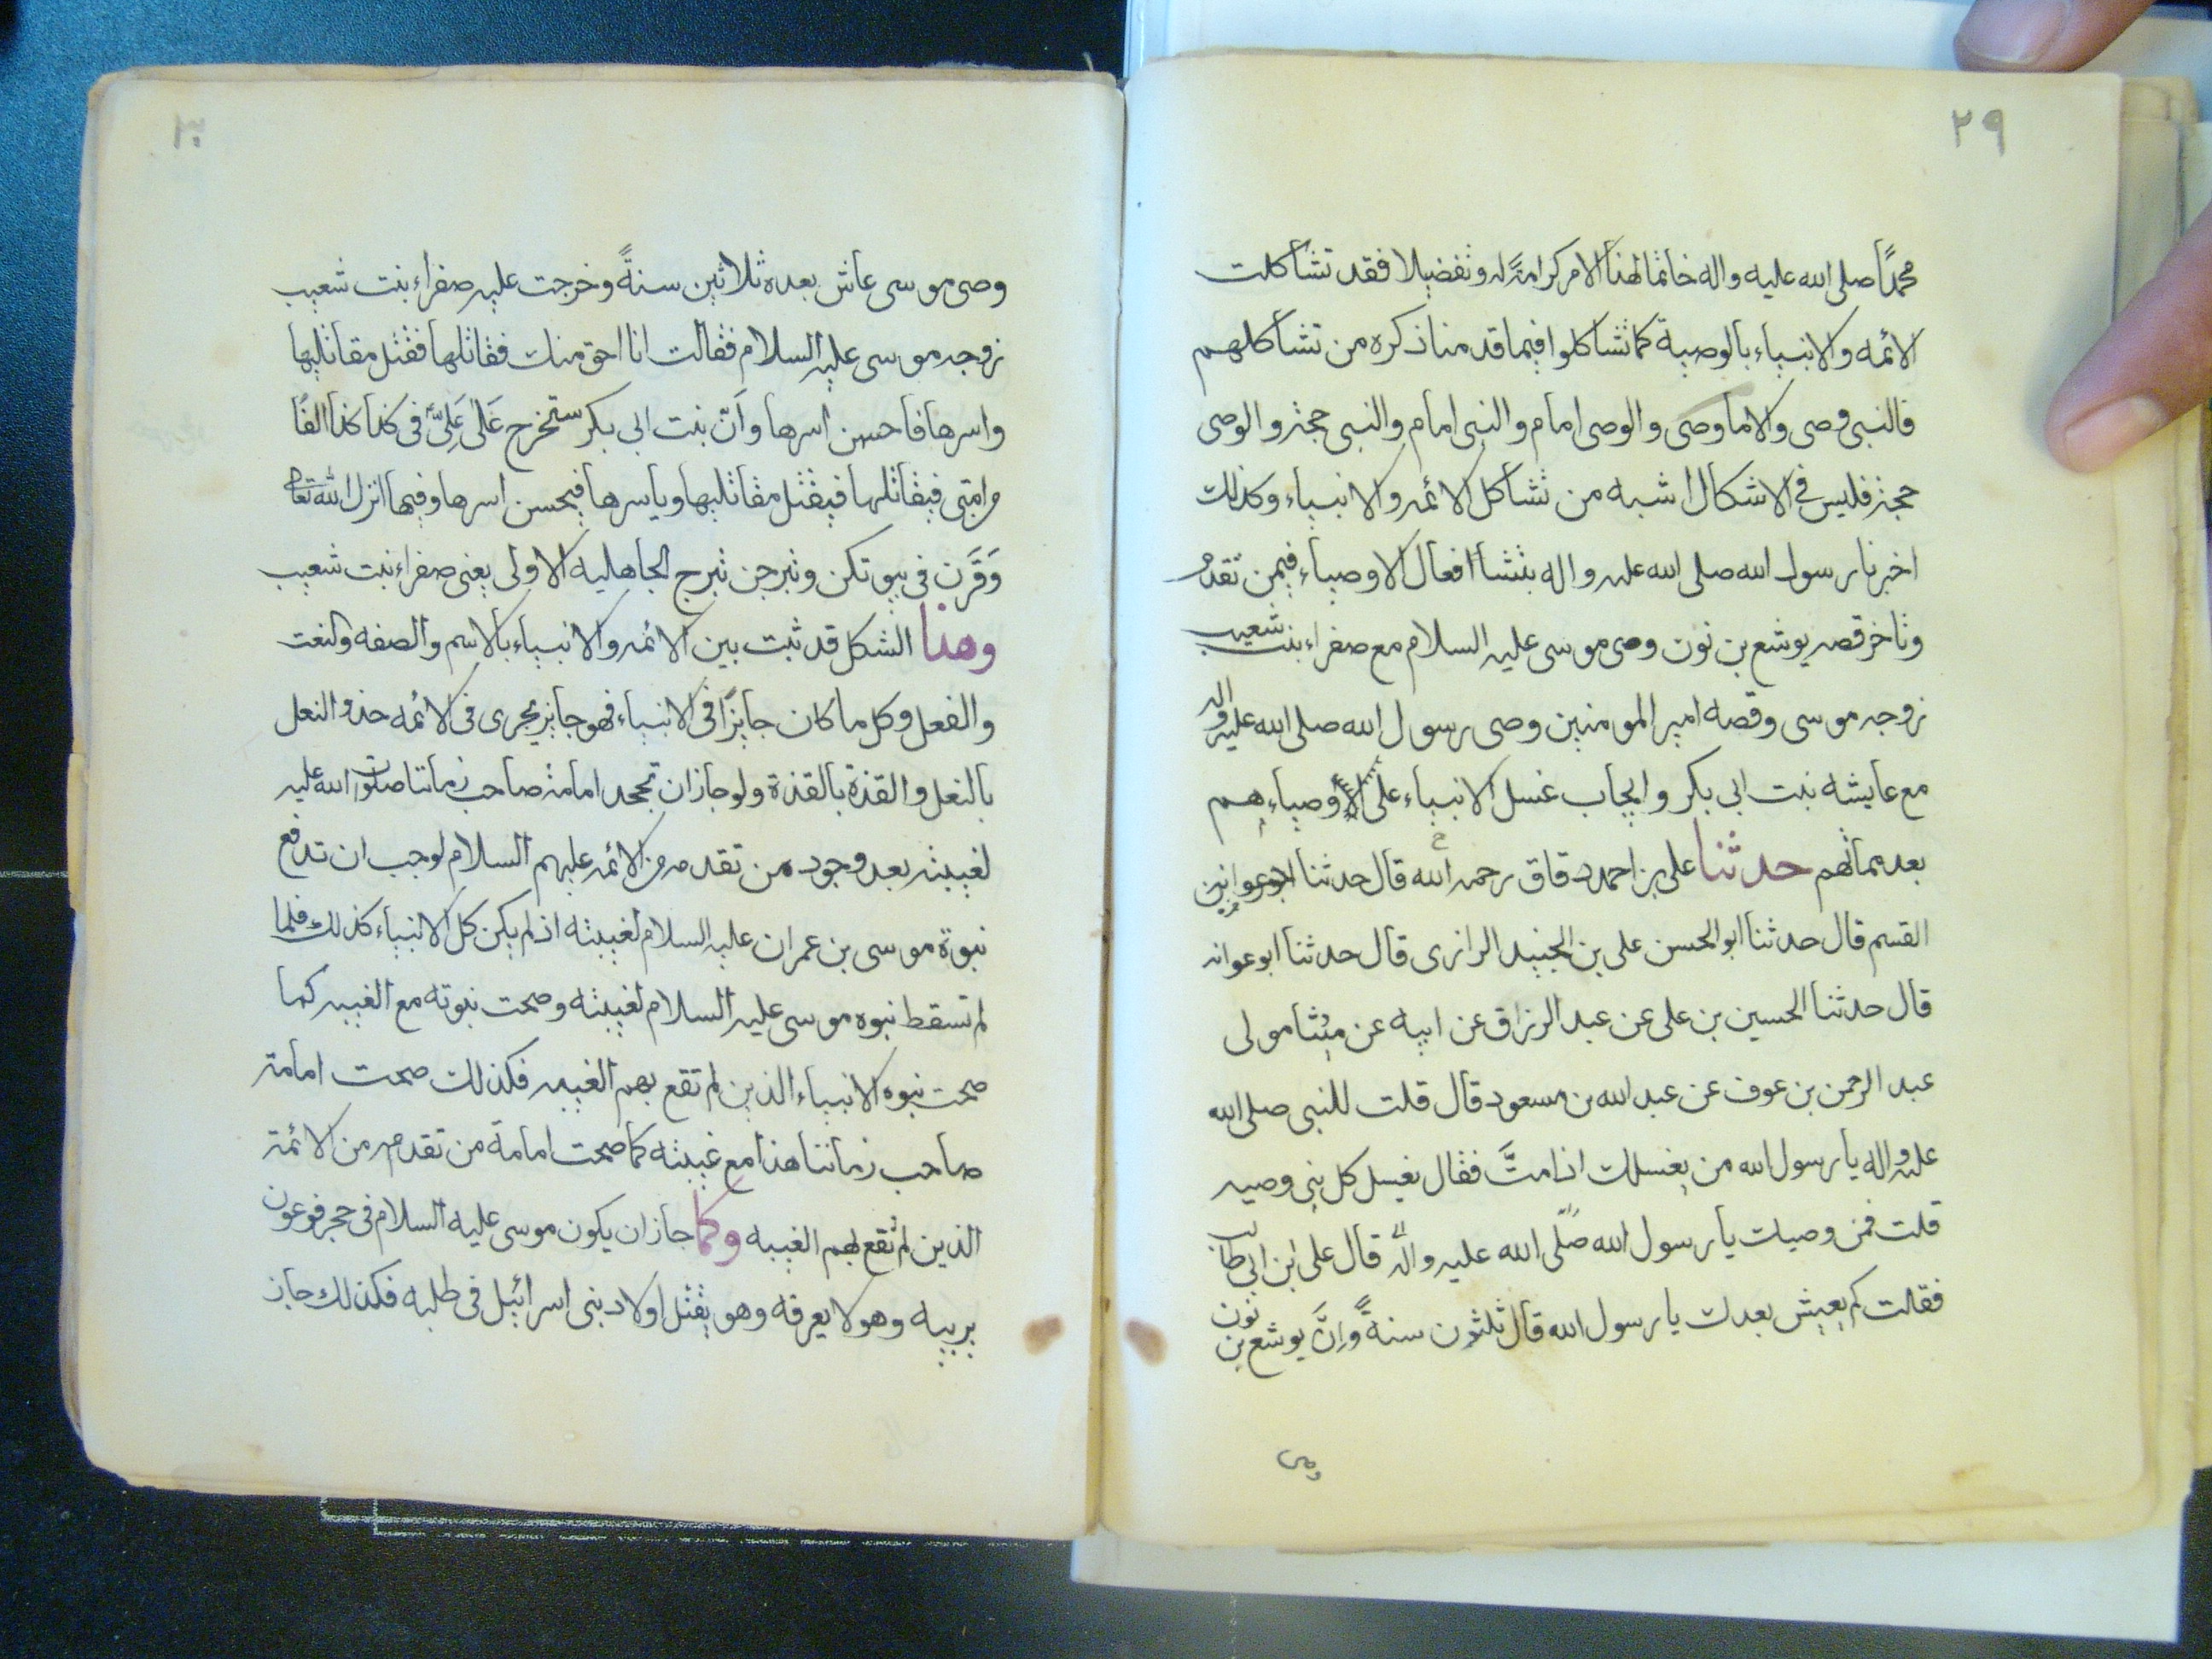 ٢٩
محمدًا صلى الله عليه واله خاتما لهذا الامر كرامةً له وتفضيلا فقد تشاكلت
الائمه والانبياء بالوصية كما تشاكلوا فيما قدمنا ذكره من تشاكلهم
فالنبى وصى والاما وصى والوصى امام والنبى امام والنبى حجة والوصى
حجة فليس فى الاشكال اشبه من تشاكل الائمه والانبياء وكذلك
اخبرنا رسول الله صلى الله عليه واله بتشا افعال الاوصياء فيمن تقدم
وتاخر قصه يوشع بن نون وصى موسى عليه السلام مع صفراء بنت شعيب
زوجه موسى وقصه امير المومنين وصى رسول الله صلى الله عليه واله
مع عايشه بنت ابى بكر وايجاب غسل الانبياء على الاوصياءهم
بعد مماتهم حدثنا على بن احمد دقاق رحمه الله قال حدثنا
القسم قال حدثنا ابو الحسن على بن الجنيد الرازى قال حدثنا ابو عوانه
قال حدثنا الحسين بن على عن عبد الرزاق عن ابيه عن ميثا مولى
عبد الرحمن بن عوف عن عبد الله بن مسعود قال قلت للنبى صلى الله
عليه واله يا رسول الله من يغسلك اذا متَّ فقال يغسل كل نبى وصيه
قلت فمن وصيك يا رسول الله صلّى الله عليه واله قال على ابن ابى طالب
فقالت كم يعيش بعدك يا رسول الله قال ثلثون سنةً وإنَّ يوشع بن نون
وصى
٣٠
وصى موسى عاش بعده ثلاثين سنةً وخرجت عليه صفراء بنت شعيب
زوجه موسى عليه السلام فقالت انا احق منك فقاتلها فقتل مقاتليها
واسرها فاحسن اسرها وانّ بنت ابى بكر ستخرج عَلىٰ عَلِىٍّ فى كذا كذا الفًا
من امتى فيقاتلها فيقتل مقاتليها وياسرها فيحسن اسرها وفيها انزل الله تعالى
وَقَرَن فى بيوتكن وتبرجن تبرج الجاهليه الاولى يعنى صفراء بنت شعيب
وهذا الشكل قد ثبت بين الائمه والانبياء بالاسم والصفه والنعت
والفعل وكل ما كان جايزًا فى الانبياء فهو جايز يجرى فى الائمه حذو النعل
بالنعل والقذة بالقذة ولو جاز ان تجحد امامة صاحب زماننا صلوات الله عليه
لغيبته بعد وجود من تقدمه من الائمه عليهم السلام لوجب ان تدفع
نبوة موسى بن عمران عليه السلام لغيبته اذ لم يكن كل الانبياء كذلك فلما
لم تسقط نبوه موسى عليه السلام لغيبته وصحت نبوته مع الغيبه كما
صحت نبوه الانبياء الذين لم تقع بهم الغيبه فكذلك صحت امامة
صاحب زماننا هذا مع غيبته كما صحت امامة من تقدمه من الائمة
الذين لم تقع بهم الغيبه وكما جاز ان يكون موسى عليه السلام فى حجر فرعون
يربيه وهو لا يعرفه وهو يقتل اولاد بنى اسرائيل فى طلبه فكذلك جاز